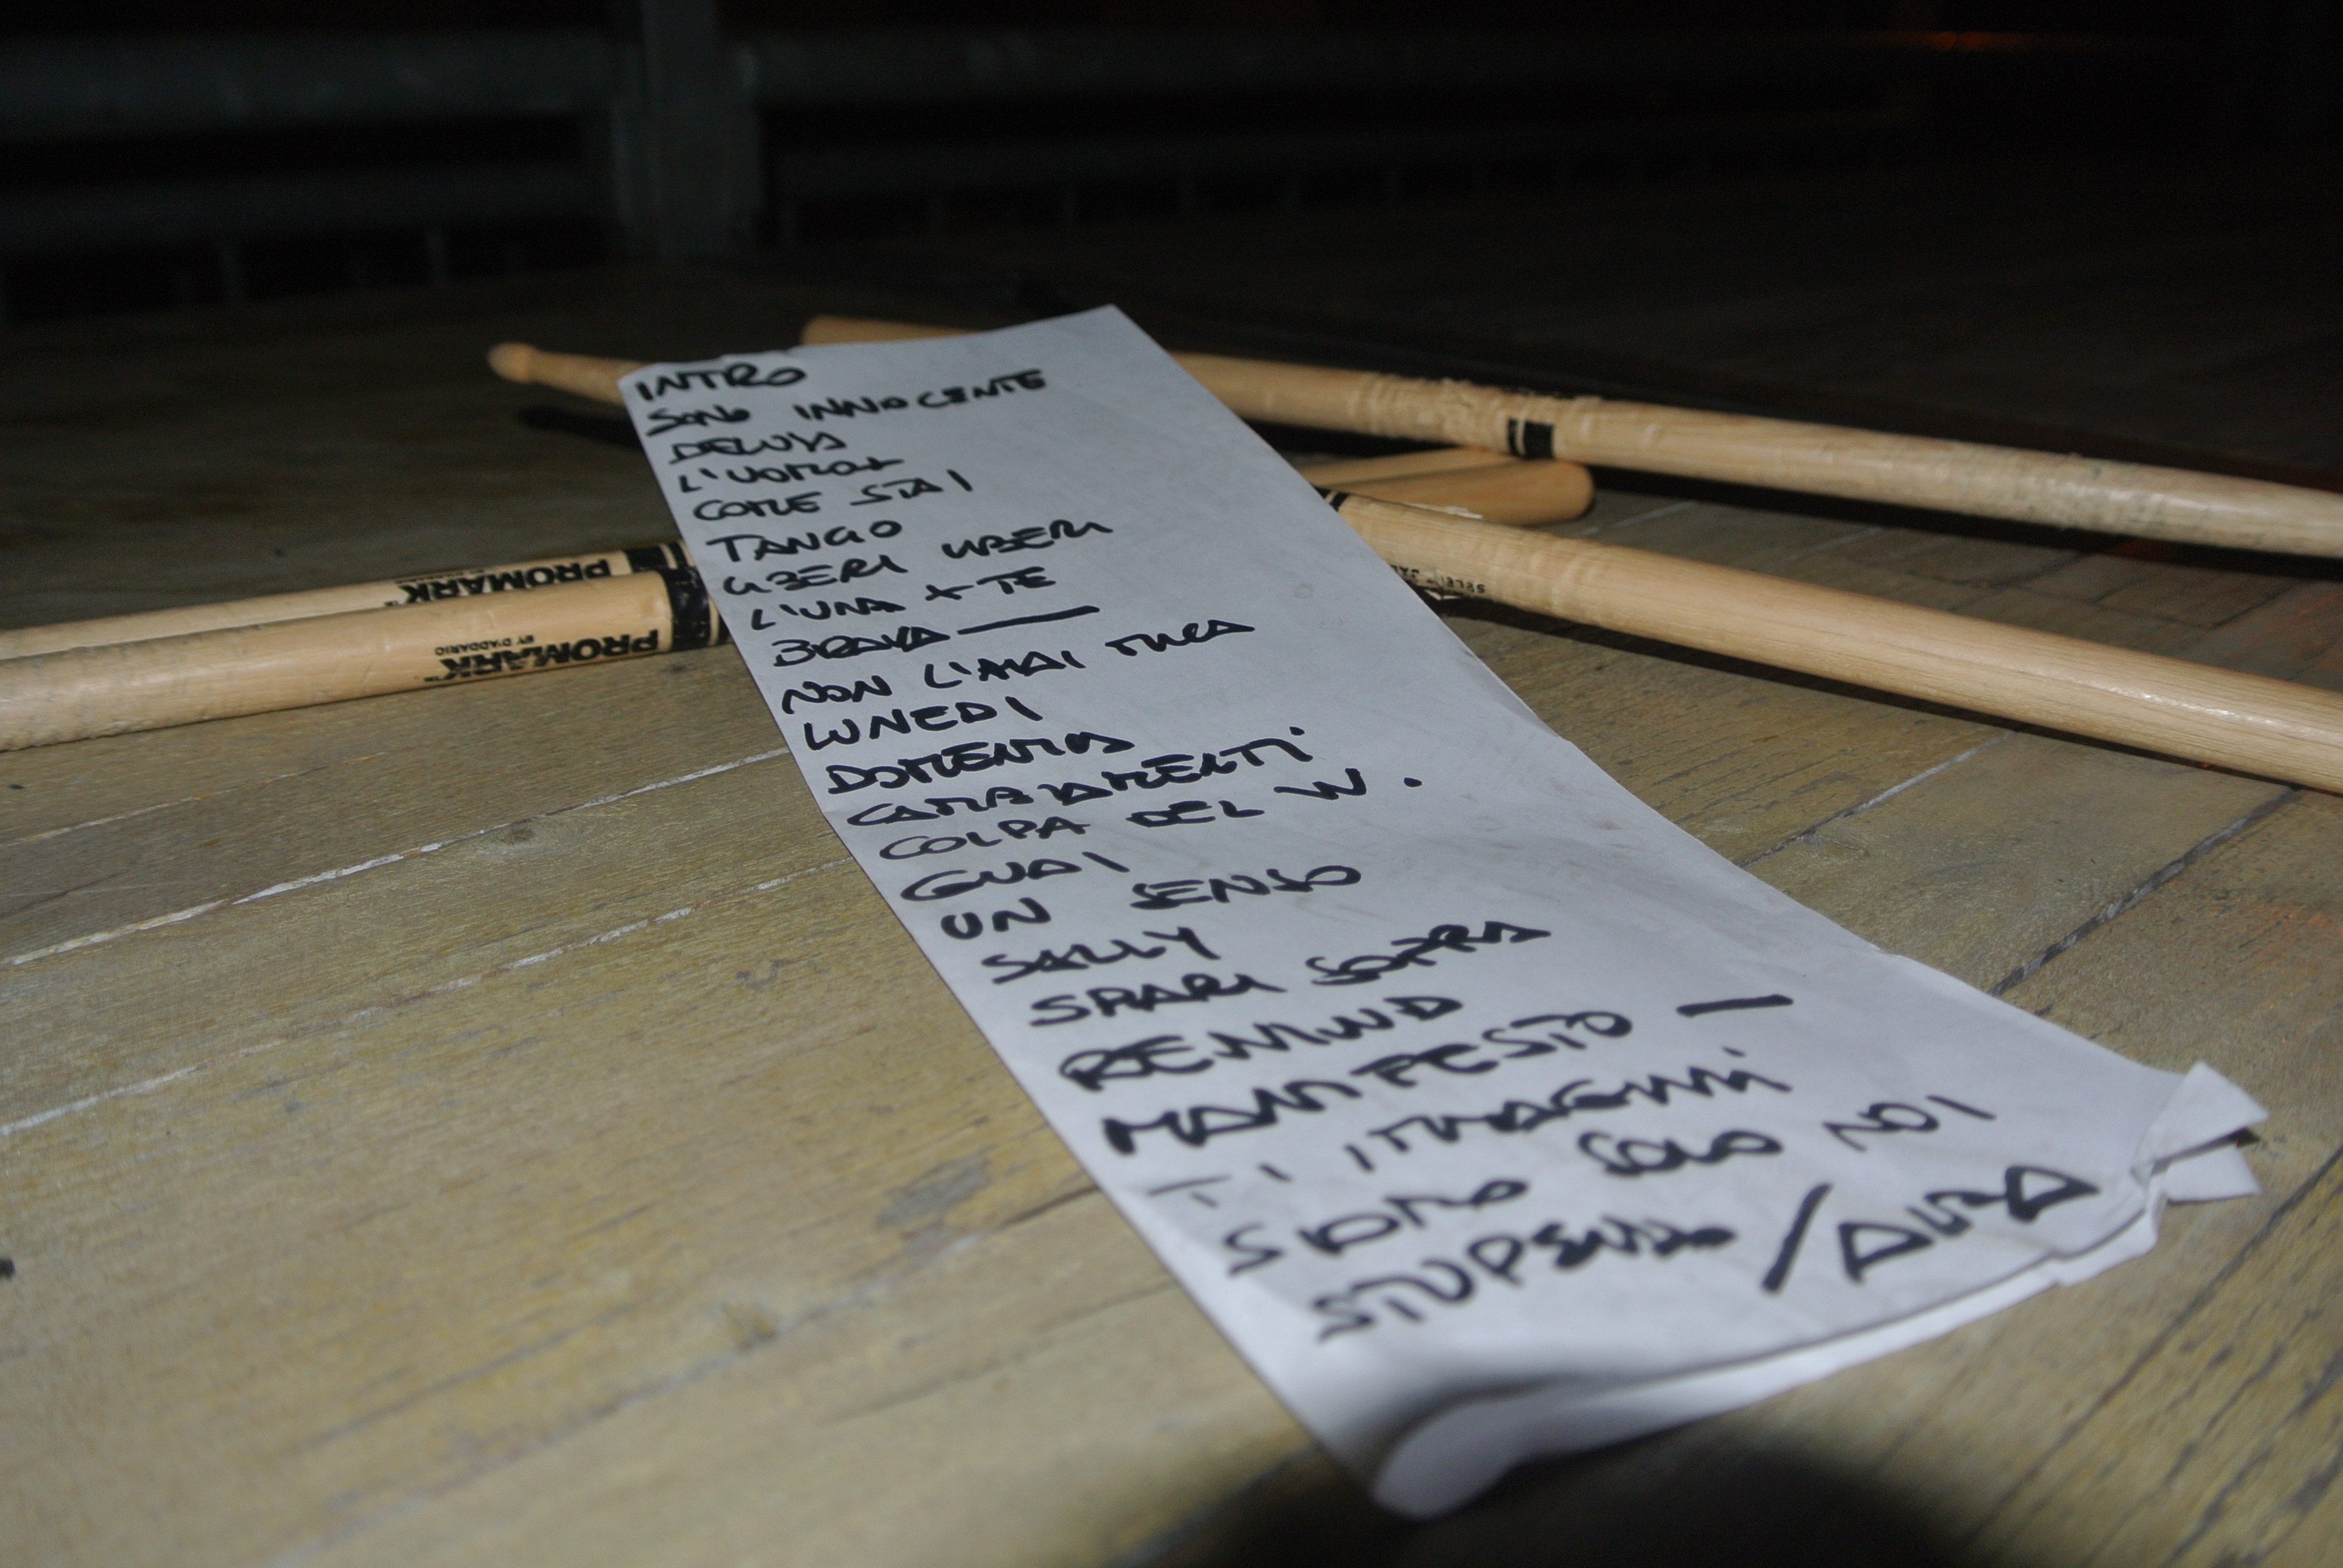 INTRO
SONO INNOCENTE
DELUSA
L'UOMO +
COME STAI
TANGO
LIBERI LIBERI
L'UNA X TE
BRAVA —
NON L'HAI MICA
LUNEDI
DOMENICA
CAMBIAMENTI
COLPA DEL W.
GUAI
UN SENSO
SALLY
SPARI SOPRA
REWIND
MANIFESTO —
TI IMMAGINI
SIAMO SOLO NOI
STUPENDO / ALBA
PROMARK
PROMARK
BY D'ADDARIO